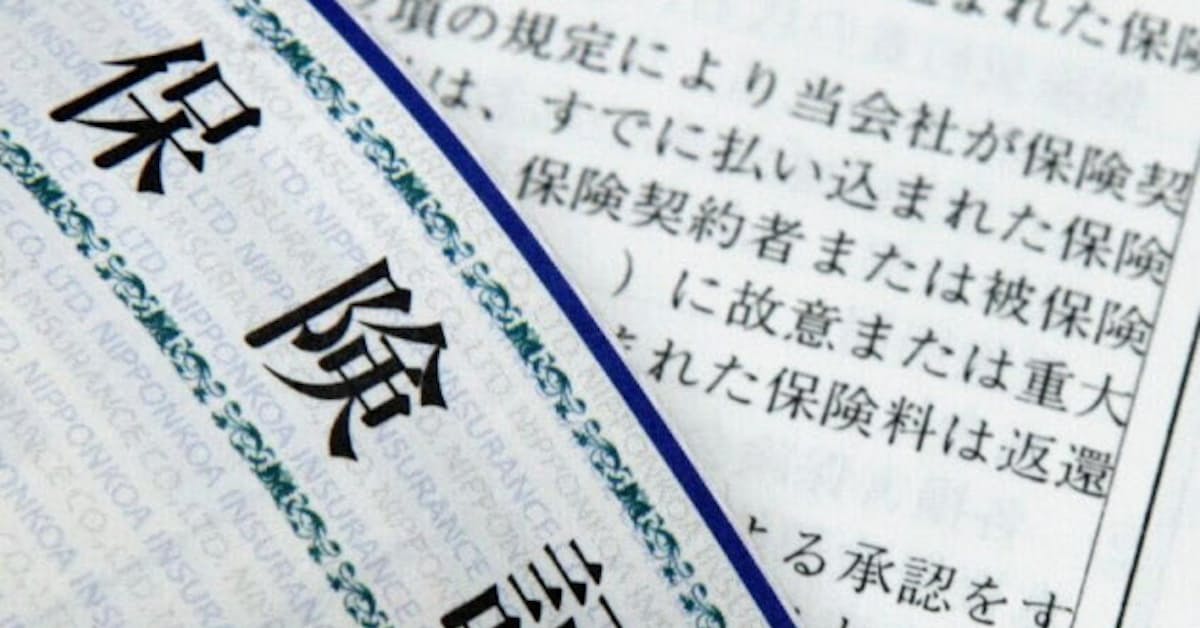 保険
まれた保険
項の規定により当会社が保険契
は、すでに払い込まれた保険
保険契約者または被保険
）に故意または重大
れた保険料は返還
る承認をす
NIPPONKOA INSURANCE CO., LTD.